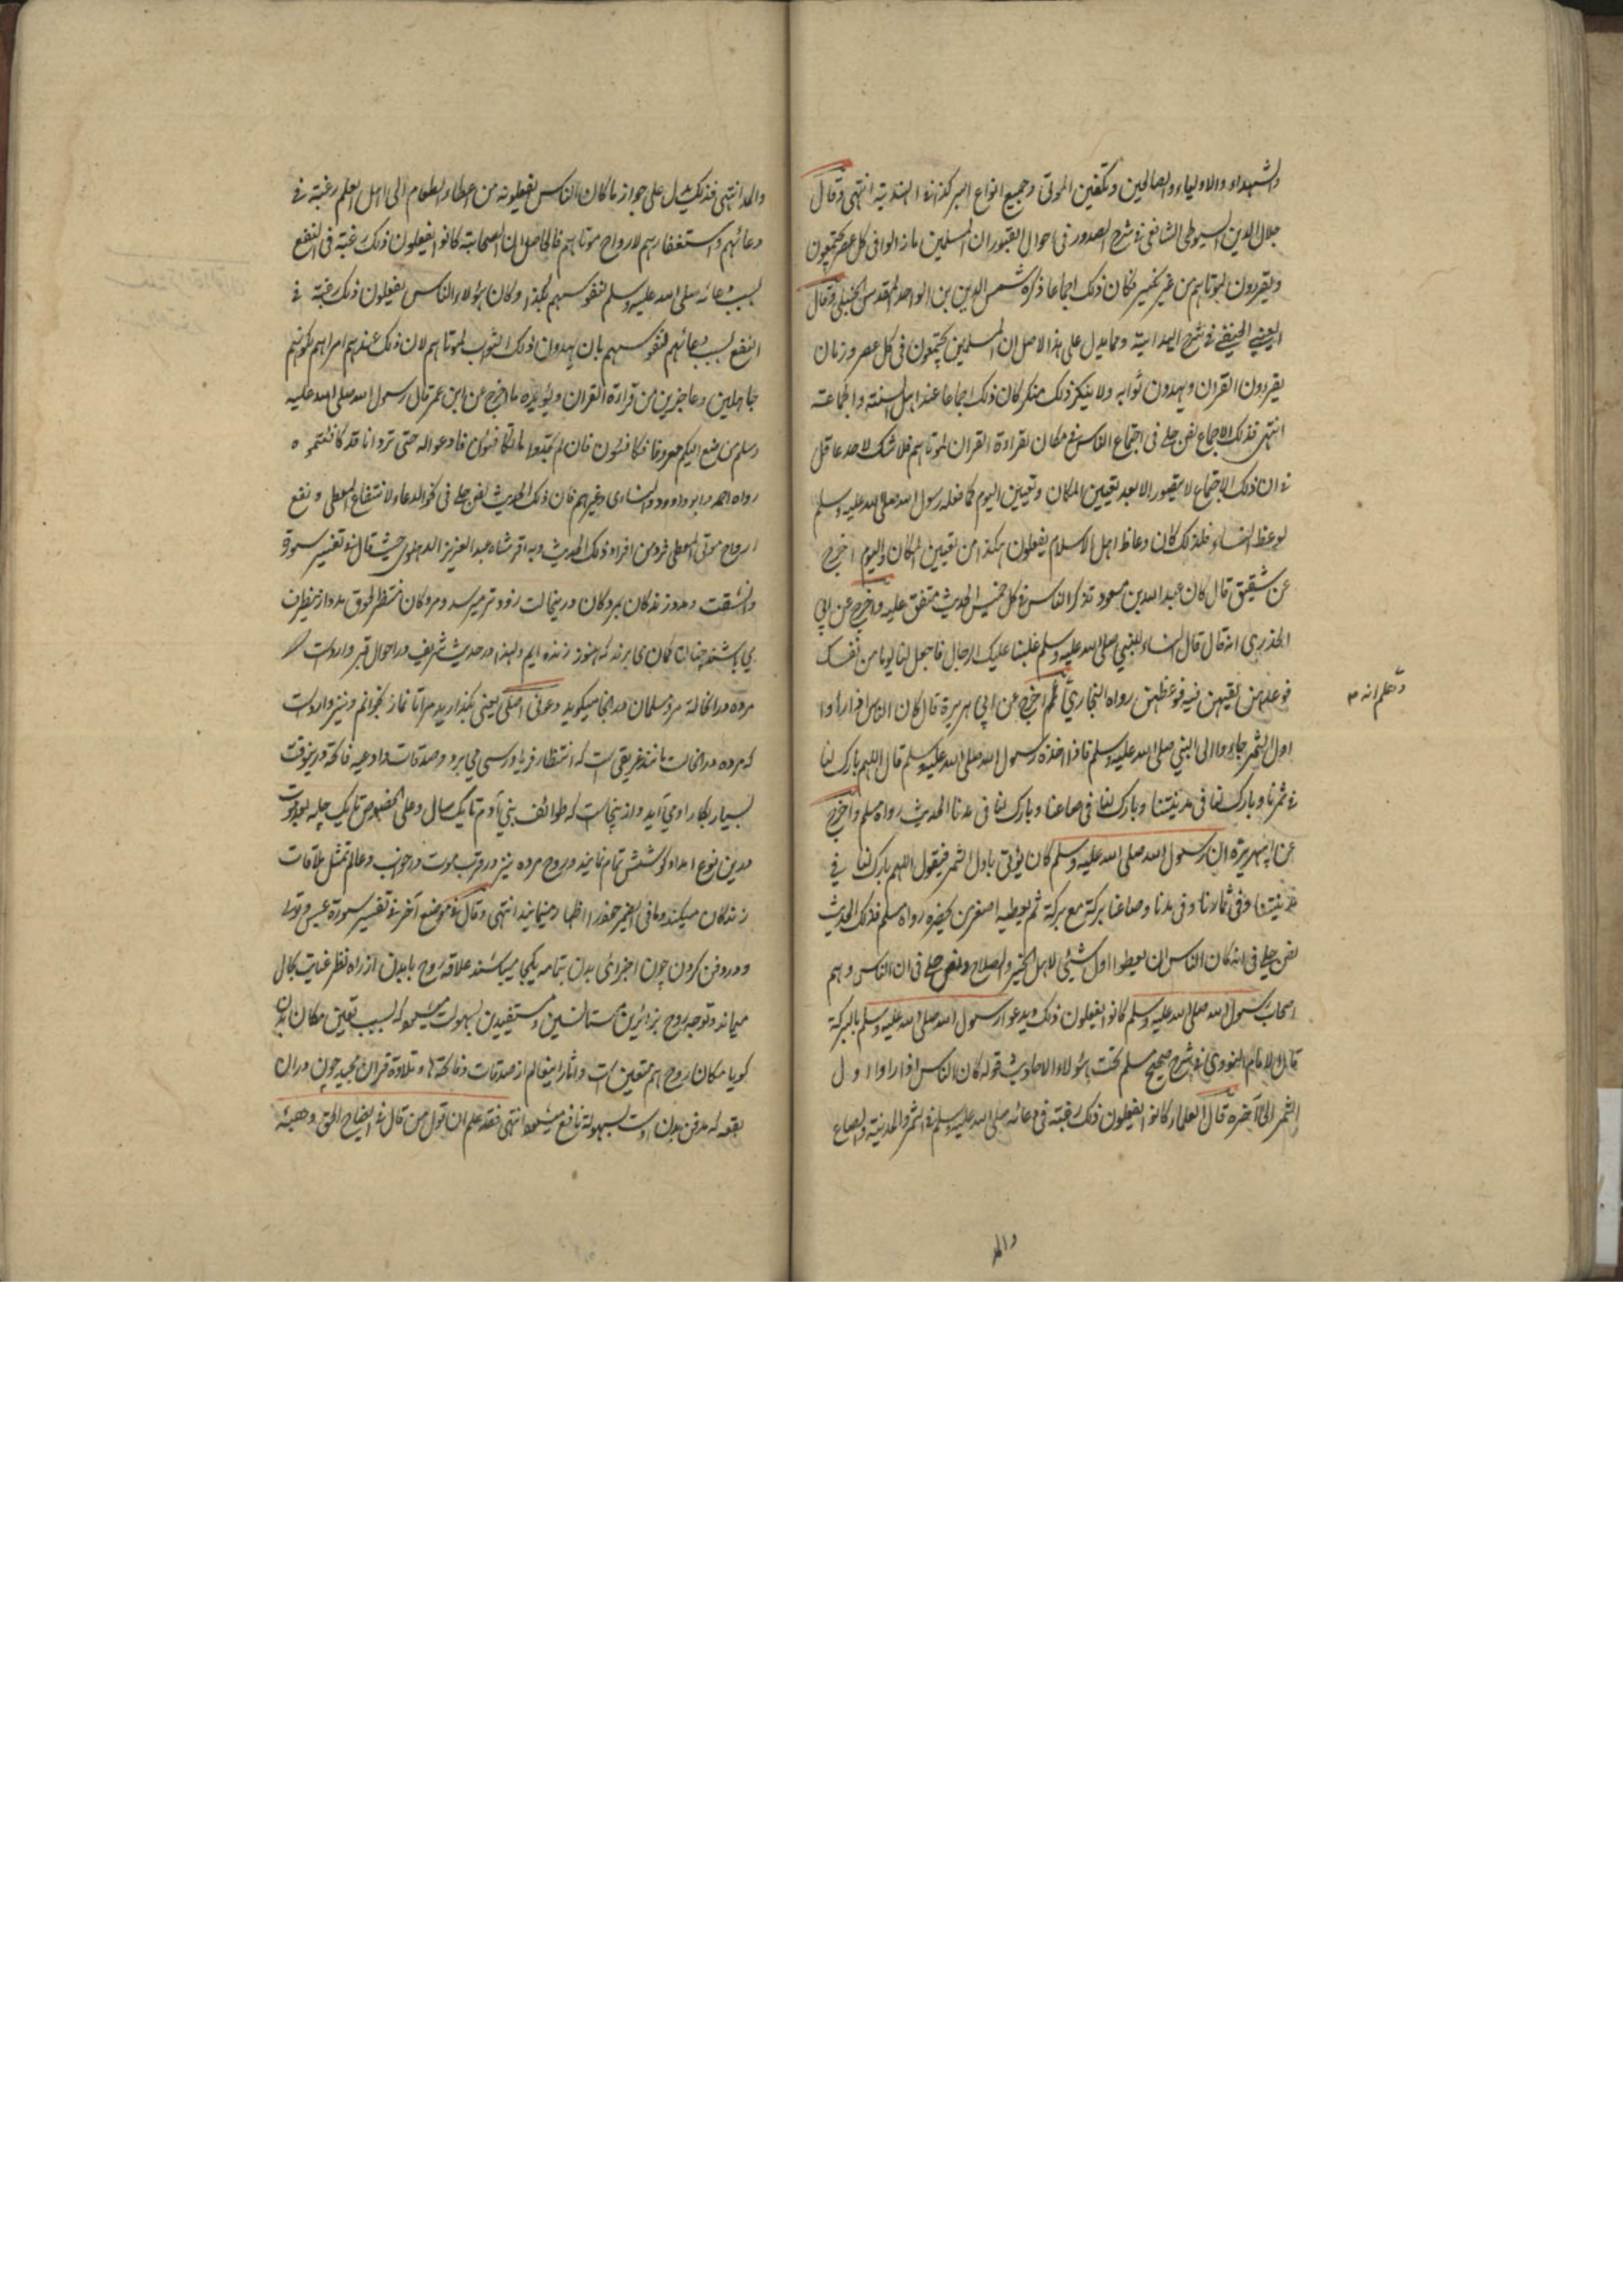 والشهداء والاولياء والصالحين وتكفين الموتى وجميع انواع البر كذا فى الهندية انتهى وقال
جلال الدين السيوطى الشافعى فى شرح الصدور فى احوال القبور ان المسلمين ما زالوا فى كل عصر يجتمعون
ويقرءون لموتاهم من غير نكير فكان ذلك اجماعا ذكره شمس الدين بن الواحد المقدسى الحنبلى وقال
العينى الحنفى فى شرح الهداية ومما يدل على هذا الاصل ان المسلمين يجتمعون فى كل عصر وزمان
يقرءون القران ويهدون ثوابه ولا ينكر ذلك منكر كان ذلك اجماعا عند اهل السنة والجماعة
انتهى فذلك الاجماع نص جلى فى اجتماع الناس فى مكان لقراءة القران لموتاهم فلا شك لاحد عاقل
فى ان ذلك الاجتماع لا يتصور الا بعد تعيين المكان وتعيين اليوم كما فعله رسول الله صلى الله عليه وسلم
لوعظ النساء فلذلك كان وعاظ اهل الاسلام يفعلون هكذا من تعيين المكان واليوم اخرج
عن شقيق قال كان عبد الله بن مسعود تذكر الناس فى كل خميس الحديث متفق عليه واخرج عن ابى
الخدرى انه قال قال النساء للنبى صلى الله عليه وسلم غلبنا عليك الرجال فاجعل لنا يوما من نفسك
فوعدهن لقيهن فيه فوعظهن رواه البخارى ثم اخرج عن ابى هريرة قال كان الناس اذا راوا
واعلم انه م
اول الثمر جاءوا الى النبى صلى الله عليه وسلم فاذا اخذه رسول الله صلى الله عليه وسلم قال اللهم بارك لنا
فى ثمرنا وبارك لنا فى مدينتنا وبارك لنا فى صاعنا وبارك لنا فى مدنا الحديث رواه مسلم واخرج
عن ابى هريرة ان رسول الله صلى الله عليه وسلم كان يؤتى باول الثمر فيقول اللهم بارك لنا فى
مدينتنا وفى ثمارنا وفى مدنا وصاعنا بركة مع بركة ثم يعطيه اصغر من يحضره رواه مسلم فذلك الحديث
نص جلى فى انه كان الناس ان يعطوا اول شئى لاهل الخير والصلاح ونص جلى فى ان الناس وهم
اصحاب رسول الله صلى الله عليه وسلم كانوا يفعلون ذلك ويدعوا رسول الله صلى الله عليه وسلم بالبركة
قال الامام النووى فى شرح صحيح مسلم تحت هؤلاء الاحاديث قوله كان الناس اذا راوا اول
الثمر الى آخره قال العلماء كانوا يفعلون ذلك رغبة فى دعائه صلى الله عليه وسلم فى الثمر والمدينة والصاع
والمد
والمد انتهى فذلك يدل على جواز ما كان الناس يفعلونه من اعطاء الطعام الى اهل العلم رغبة فى
دعائهم واستغفارهم لارواح موتاهم فالحاصل ان الصحابة كانوا يفعلون ذلك رغبة فى النفع
بسبب دعائه صلى الله عليه وسلم لنفوسهم هكذا وكان هؤلاء الناس يفعلون ذلك رغبة فى
النفع بسبب دعائهم لنفوسهم بان يهدون ذلك الثواب لموتاهم لان ذلك عندهم امر اهم لكونهم
جاهلين وعاجزين من قراءة القران ويؤيده ما اخرج عن ابن عمر قال رسول الله صلى الله عليه
وسلم من صنع اليكم معروفا فكافئون فان لم تجدوا ما تكافئون فادعوا له حتى تروا انا قد كافئتموه
رواه احمد وابو داوود والنسائى وغيرهم فان ذلك الحديث نص جلى فى كون الدعاء لانتفاع المعطى ونفع
ارواح موتى المعطى فرد من افراد ذلك الحديث وبه اقر شاه عبد العزيز الدهلوى حيث قال فى تفسير سورة
وانشقت ومدد زندگان بمردگان درينحالت زودتر ميرسد ومردگان منتظر لحوق مدد ازينطرف
مى باشند چنانكه گمان مى برند كه هنوز زنده ايم ولهذا در حديث شريف در احوال قبر وارد است كه
مرده در انحالة مرد مسلمان در انجا ميگويد دعونى اصلى يعنى بگذاريد مرا تا نماز بخوانم ونيز وارد است
كه مرده در انحالت مانند غريقى است كه انتظار فرياد رسى مى برد وصدقات وادعيه فاتحه درينوقت
بسيار بكار او مى آيد و از ينجاست كه طوائف بنى آدم تا يك سال وعلى الخصوص تا يك چله بعد موت
درين نوع امداد كوشش تمام نمايند و روح مرده نيز در قرب موت در خواب وعالم تمثل ملاقات
زندگان ميكند وما فى الضمير خود را اظهار مينمايد انتهى وقال فى موضع آخر فى تفسير سورة عبس وتولى
و در دفن كردن چون اجزاى بدن بتمامه يكجا ميباشند علاقه روح با بدن از راه نظر عنايت بحال
ميماند وتوجه روح بزائرين ومستانسين ومستفيدين بسهولت ميشود كه بسبب تعين مكان بدن
گويا مكان روح هم متعين است و اثار اينعالم از صدقات وفاتحه ها وتلاوة قران مجيد چون دران
بقعه كه مدفن بدن اوست بسهولة نافع ميشود انتهى فقد علم ان قول من قال فى ايضاح الحق